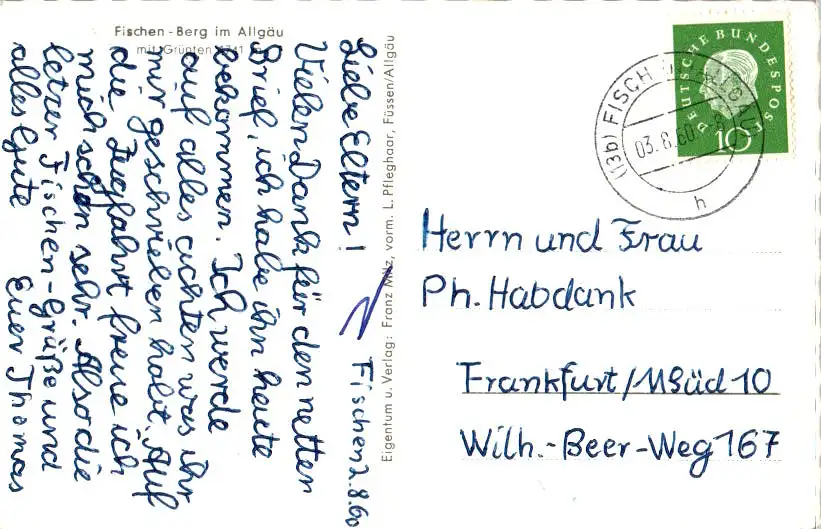 Fischen-Berg im Allgäu
mit Grünten 1741 m
Fischen 2.8.60
Liebe Eltern!
Vielen Dank für den netten
Brief, ich habe ihn heute
bekommen. Ich werde
auf alles achten was ihr
mir geschrieben habt. Auf
die Zugfahrt freue ich
mich schon sehr. Also die
letzen Fischen-Grüße und
alles Gute
Euer Thomas
Eigentum u. Verlag: Franz Milz, vorm. L. Pfleghaar, Füssen/Allgäu
DEUTSCHE BUNDESPOST
10
(13b) FISCH
03.8.60
h
Herrn und Frau
Ph. Habdank
Frankfurt/M Süd 10
Wilh.-Beer-Weg 167